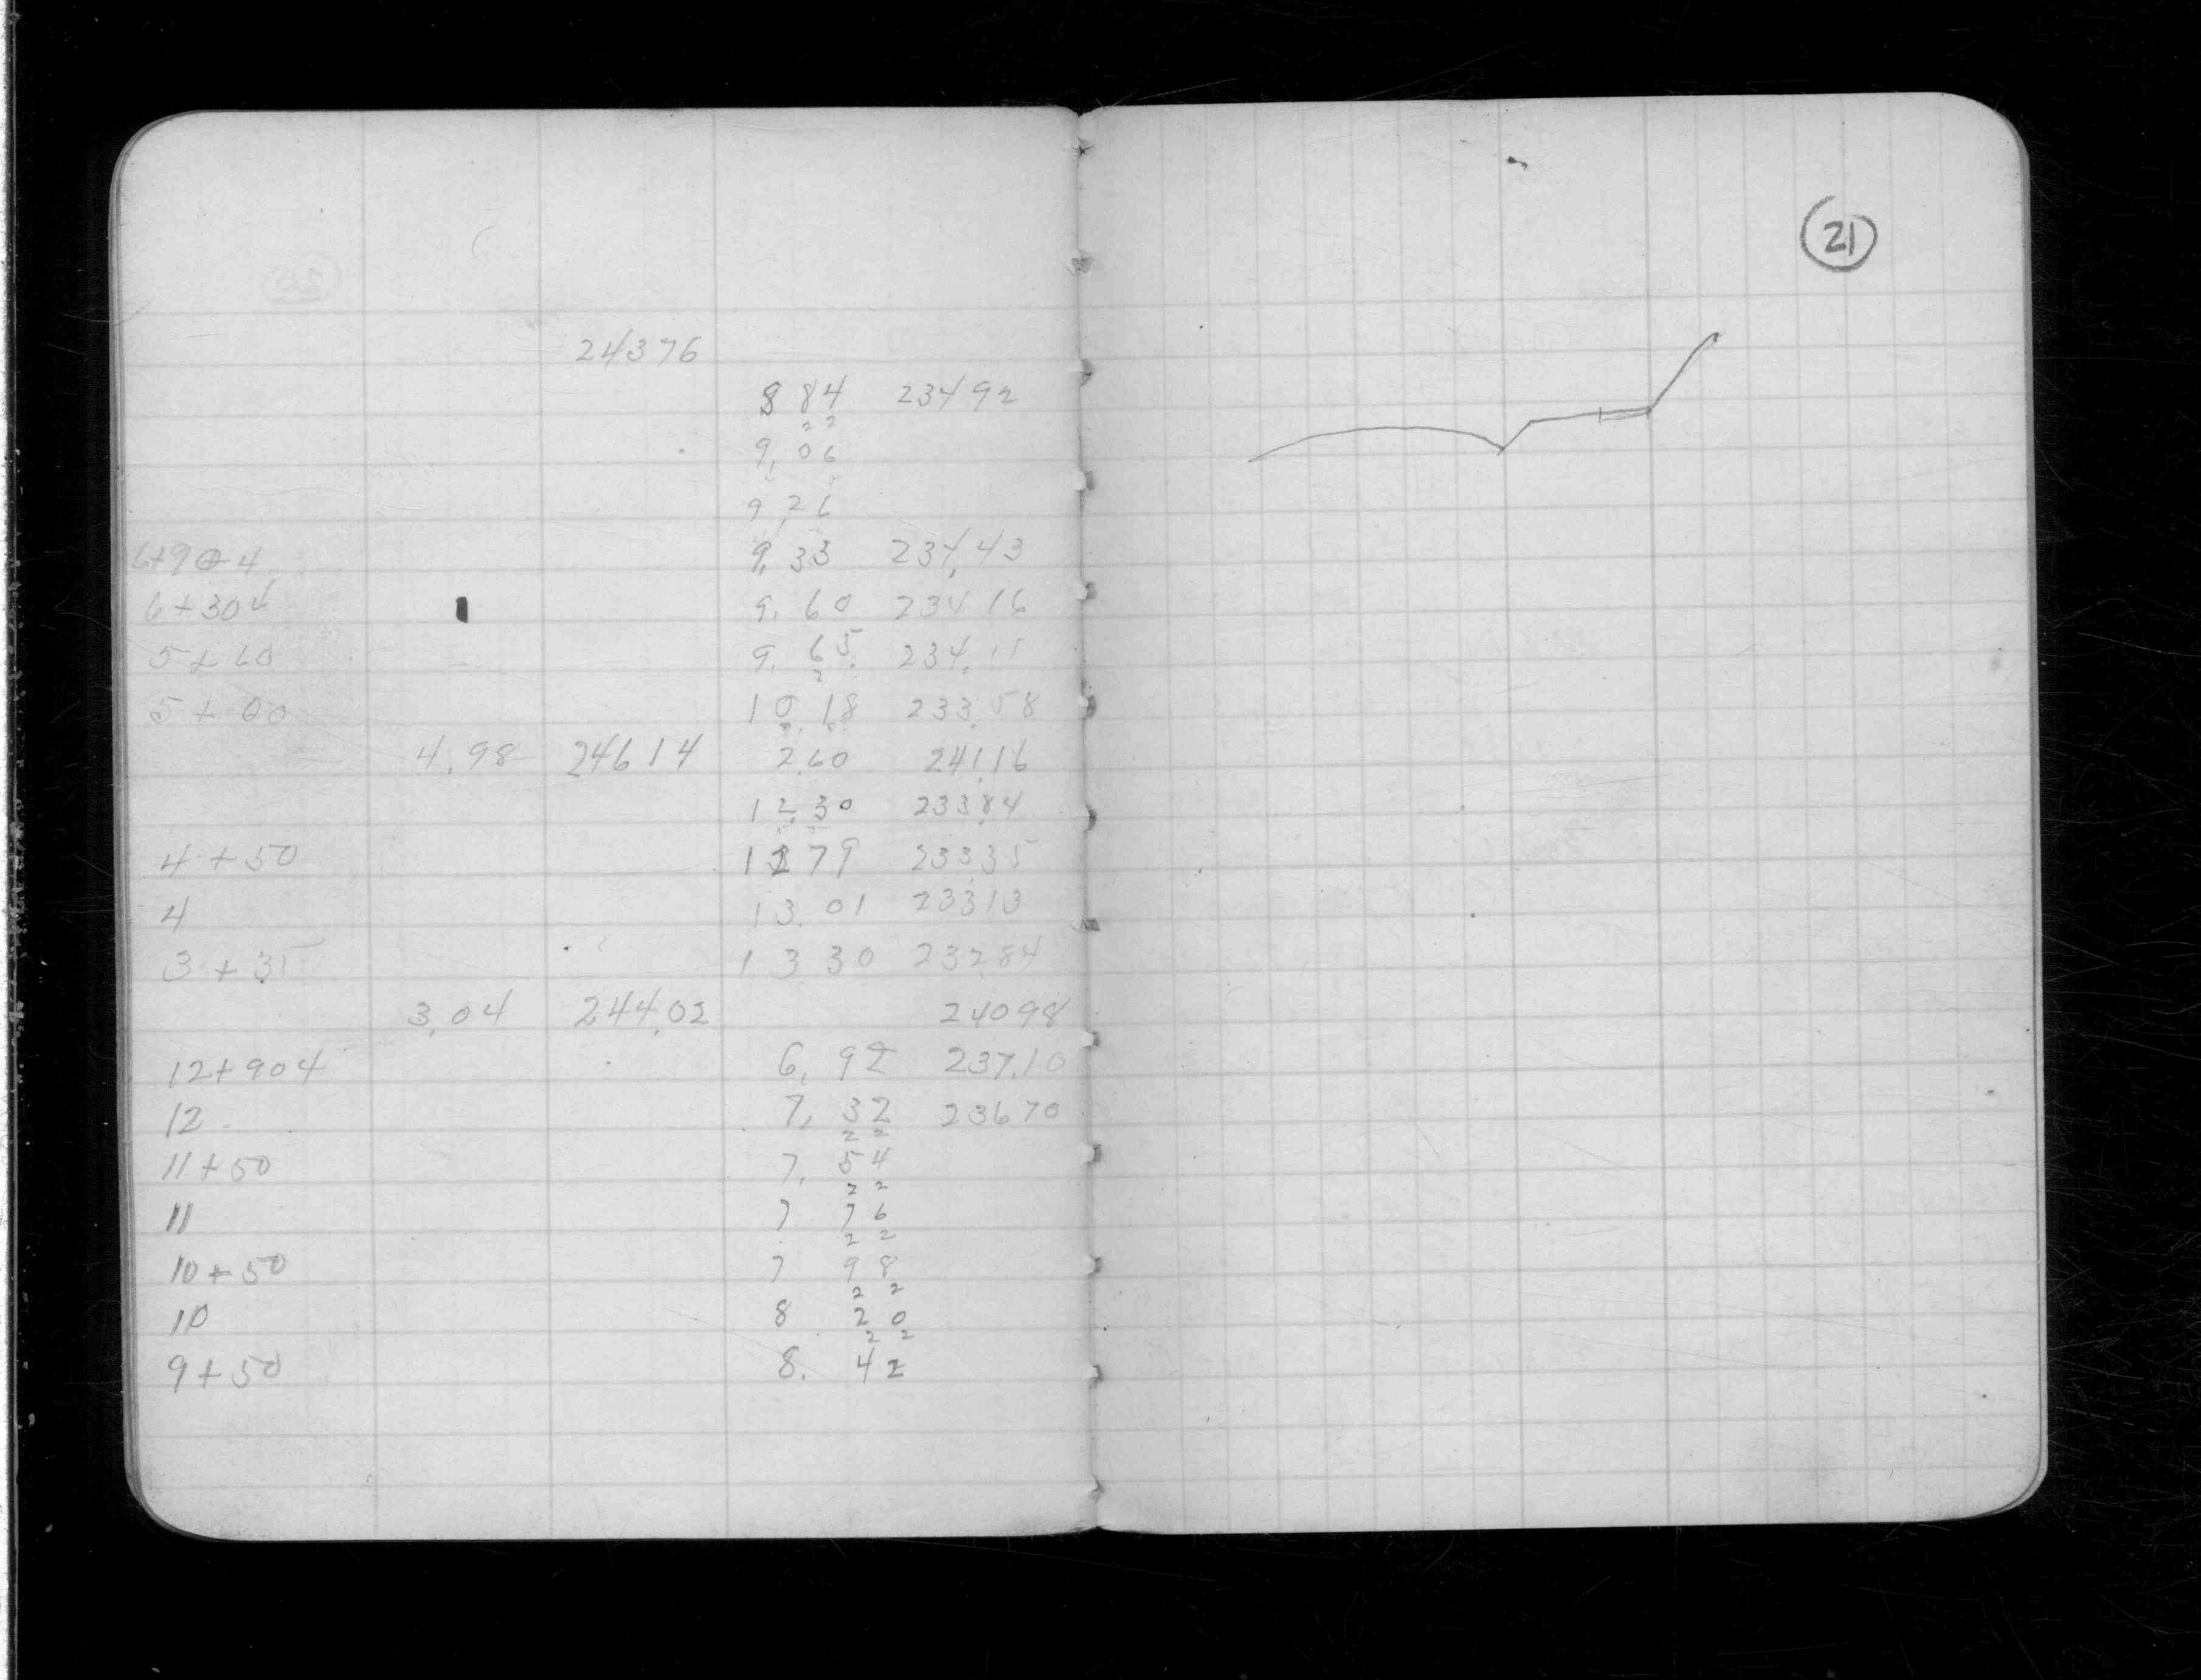 21
24376
8 84 23492
2 2
9, 06
9, 26
6+90+4 9, 33 234,43
6+304 9, 60 234 16
5+60 9, 65 234, 11
2
5+00 10, 18 233,58
4,98 24614 2,60 241,16
12,30 233,84
4+50 12 79 233,35
4 13. 01 233 13
3+35 13 30 232,84
3,04 244,02 24098
12+904 6, 92 237,10
12 7, 32 236 70
2 2
11+50 7, 54
2 2
11 7 76
2 2
10+50 7 98
2 2
10 8 20
2 2
9+50 8. 42